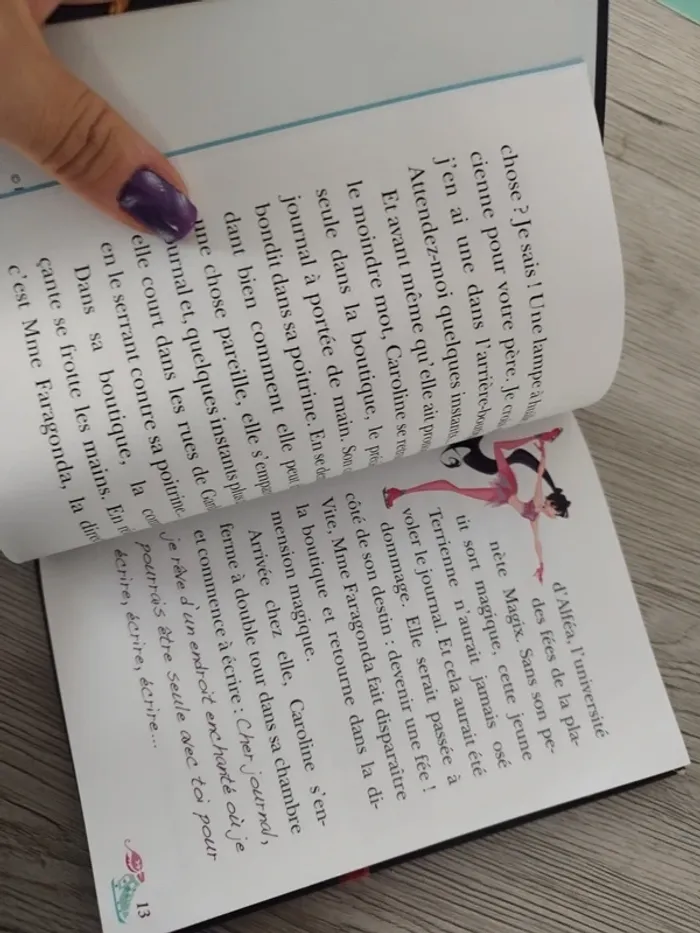 chose ? Je sais ! Une lampe à
cienne pour votre père. Je
j'en ai une dans l'arrière-
Attendez-moi quelques
Et avant même qu'elle ait
le moindre mot, Caroline se
seule dans la boutique, le
journal à portée de main. Son
bondit dans sa poitrine. En se
dant bien comment elle
une chose pareille, elle
journal et, quelques instants plus
elle court dans les rues de
en le serrant contre sa poitrine.
Dans sa boutique, la
çante se frotte les mains. En
c'est Mme Faragonda, la
d'Alféa, l'université
des fées de la pla-
nète Magix. Sans son pe-
tit sort magique, cette jeune
Terrienne n'aurait jamais osé
voler le journal. Et cela aurait été
dommage. Elle serait passée à
côté de son destin : devenir une fée !
Vite, Mme Faragonda fait disparaître
la boutique et retourne dans la di-
mension magique.
Arrivée chez elle, Caroline s'en-
ferme à double tour dans sa chambre
et commence à écrire : Cher journal,
je rêve d'un endroit enchanté où je
pourrais être seule avec toi pour
écrire, écrire, écrire...
13